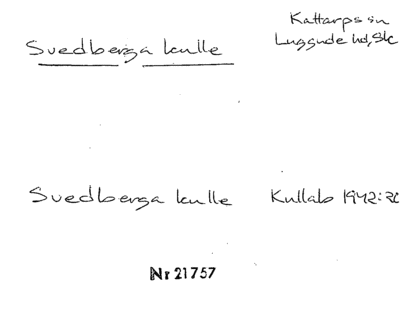 Svedberga kulle
Kattarps sn
Luggude hd, Sk
Svedberga kulle Kullab 1942:20
Nr 21757